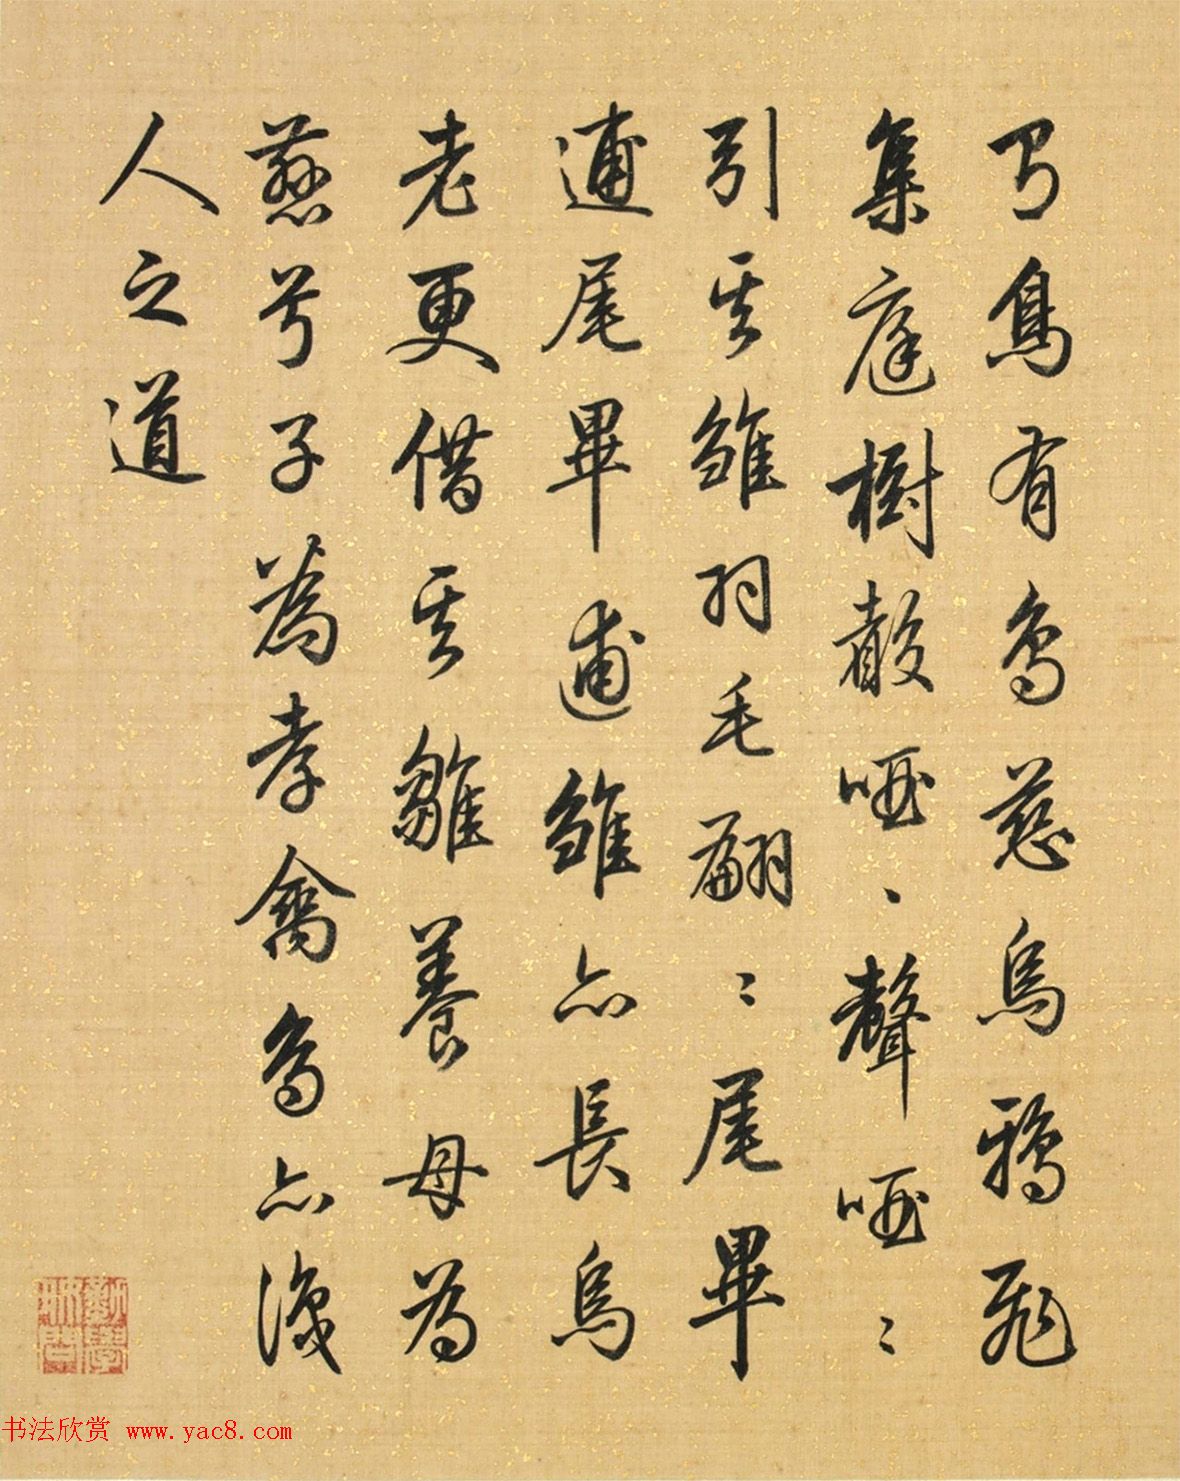 有鳥有鳥慈烏鴉飛
集庭樹聲啞、聲啞〻
引其雛羽毛翩〻尾畢
逋尾畢逋雛亦長烏
老更借其雛養母為
慈兮子為孝禽鳥亦識
人之道
勤學
好問
书法欣赏 www.yac8.com